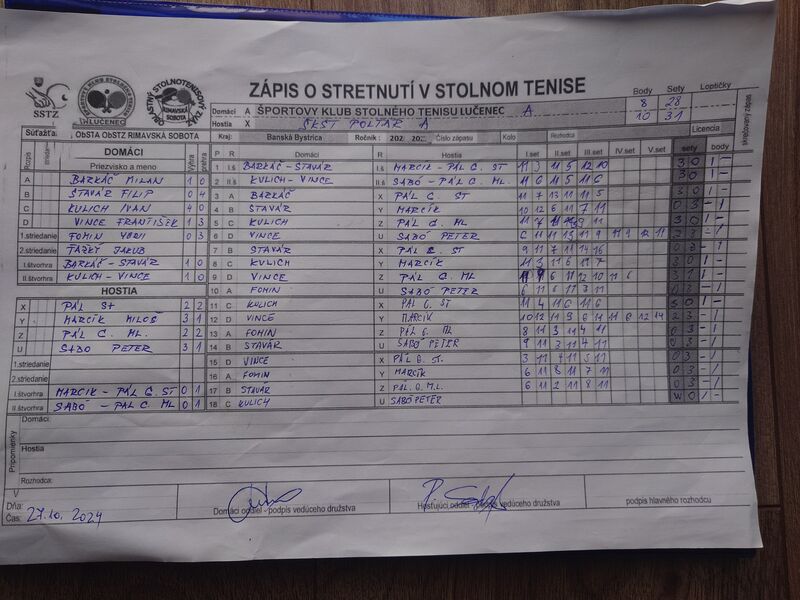 ZÁPIS O STRETNUTÍ V STOLNOM TENISE
Body Sety Loptičky
SSTZ
LUČENEC
OBLASTNÝ STOLNOTENISOVÝ ZVÄZ RIMAVSKÁ SOBOTA
Domáci A ŠPORTOVÝ KLUB STOLNÉHO TENISU LUČENEC A 8 28
Hostia X ŠKST POLTÁR A 10 31
skrečovaný zápis
Súťaž: ObSTA ObSTZ RIMAVSKÁ SOBOTA Kraj: Banská Bystrica Ročník: Číslo zápasu Kolo Rozhodca Licencia
DOMÁCI
Priezvisko a meno Výhra prehra
A BARKÁČ MILAN 1 0
B ŠTAVÁR FILIP 0 4
C KULICH IVAN 4 0
D VINCE FRANTIŠEK 1 3
1.striedanie FOMIN YURII 0 3
2.striedanie ŤAŽKÝ JAKUB
I.štvorhra BARKÁČ - STAVÁR 1 0
II.štvorhra KULICH - VINCE 1 0
HOSTIA
X PÁL ST 2 2
Y MARCÍK MILOŠ 3 1
Z PÁL G. ML. 2 2
U SABÓ PETER 3 1
1.striedanie
2.striedanie
I.štvorhra MARCIK - PÁL G. ST 0 1
II.štvorhra SABÓ - PÁL G. ML 0 1
P R Domáci R Hostia I.set II.set III.set IV.set V.set sety body
1 I.š BARKÁČ - STAVÁR I.š MARCIK - PÁL G. ST 11 3 11 5 12 10 3 0 1 -
2 II.š KULICH - VINCE II.š SABÓ - PÁL G. ML. 11 6 11 5 11 6 3 0 1 -
3 A BARKÁČ X PÁL G. ST 11 7 13 11 11 5 3 0 1 -
4 B ŠTAVÁR Y MARCIK 10 12 6 11 7 11 0 3 - 1
5 C KULICH Z PÁL G. ML 3 0 1 -
6 D VINCE U SABO PETER
7 B STAVÁR X PÁL G. ST 9 11 7 11 14 16 0 3 - 1
8 C KULICH Y MARCIK 3 0 1 -
9 D VINCE Z PÁL G. ML 6 11 12 10 11 6 3 1 1 -
10 A FOMIN U SABO PETER 6 11 6 11 3 11 0 3 - 1
11 C KULICH X PAL G. ST 11 4 11 6 11 6 3 0 1 -
12 D VINCE Y MARCIK 10 12 11 9 6 11 11 8 12 14 2 3 - 1
13 A FOMIN Z PÁL G. ML 8 11 3 11 4 11 0 3 - 1
14 B STAVÁR U SABO PETER 9 11 3 11 4 11 0 3 - 1
15 D VINCE X PÁL G. ST. 3 11 4 11 3 11 0 3 - 1
16 A FOMIN Y MARCIK 6 11 8 11 7 11 0 3 - 1
17 B STAVÁR Z PÁL. G. M.L. 6 11 2 11 8 11 0 3 - 1
18 C KULICH U SABO PETER W 0 1 -
Pripomienky
Domáci:
Hostia
Rozhodca:
V
Dňa: 27.10. 2024
Čas:
Domáci oddiel - podpis vedúceho družstva
Hosťujúci oddiel - podpis vedúceho družstva
podpis hlavného rozhodcu